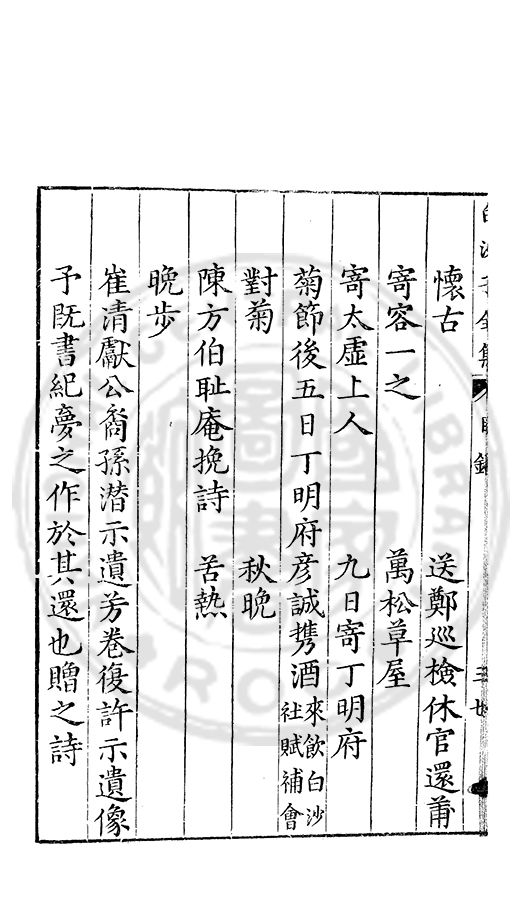 懷古　送鄭巡檢休官還莆
寄容一之　萬松草屋
寄太虛上人　九日寄丁明府
菊節後五日丁明府彥誠携酒來飲白沙社賦補會
對菊　秋晚
陳方伯耻庵挽詩　苦熱
晚步
崔清獻公裔孫潛示遺芳卷復許示遺像
予既書紀夢之作於其還也贈之詩